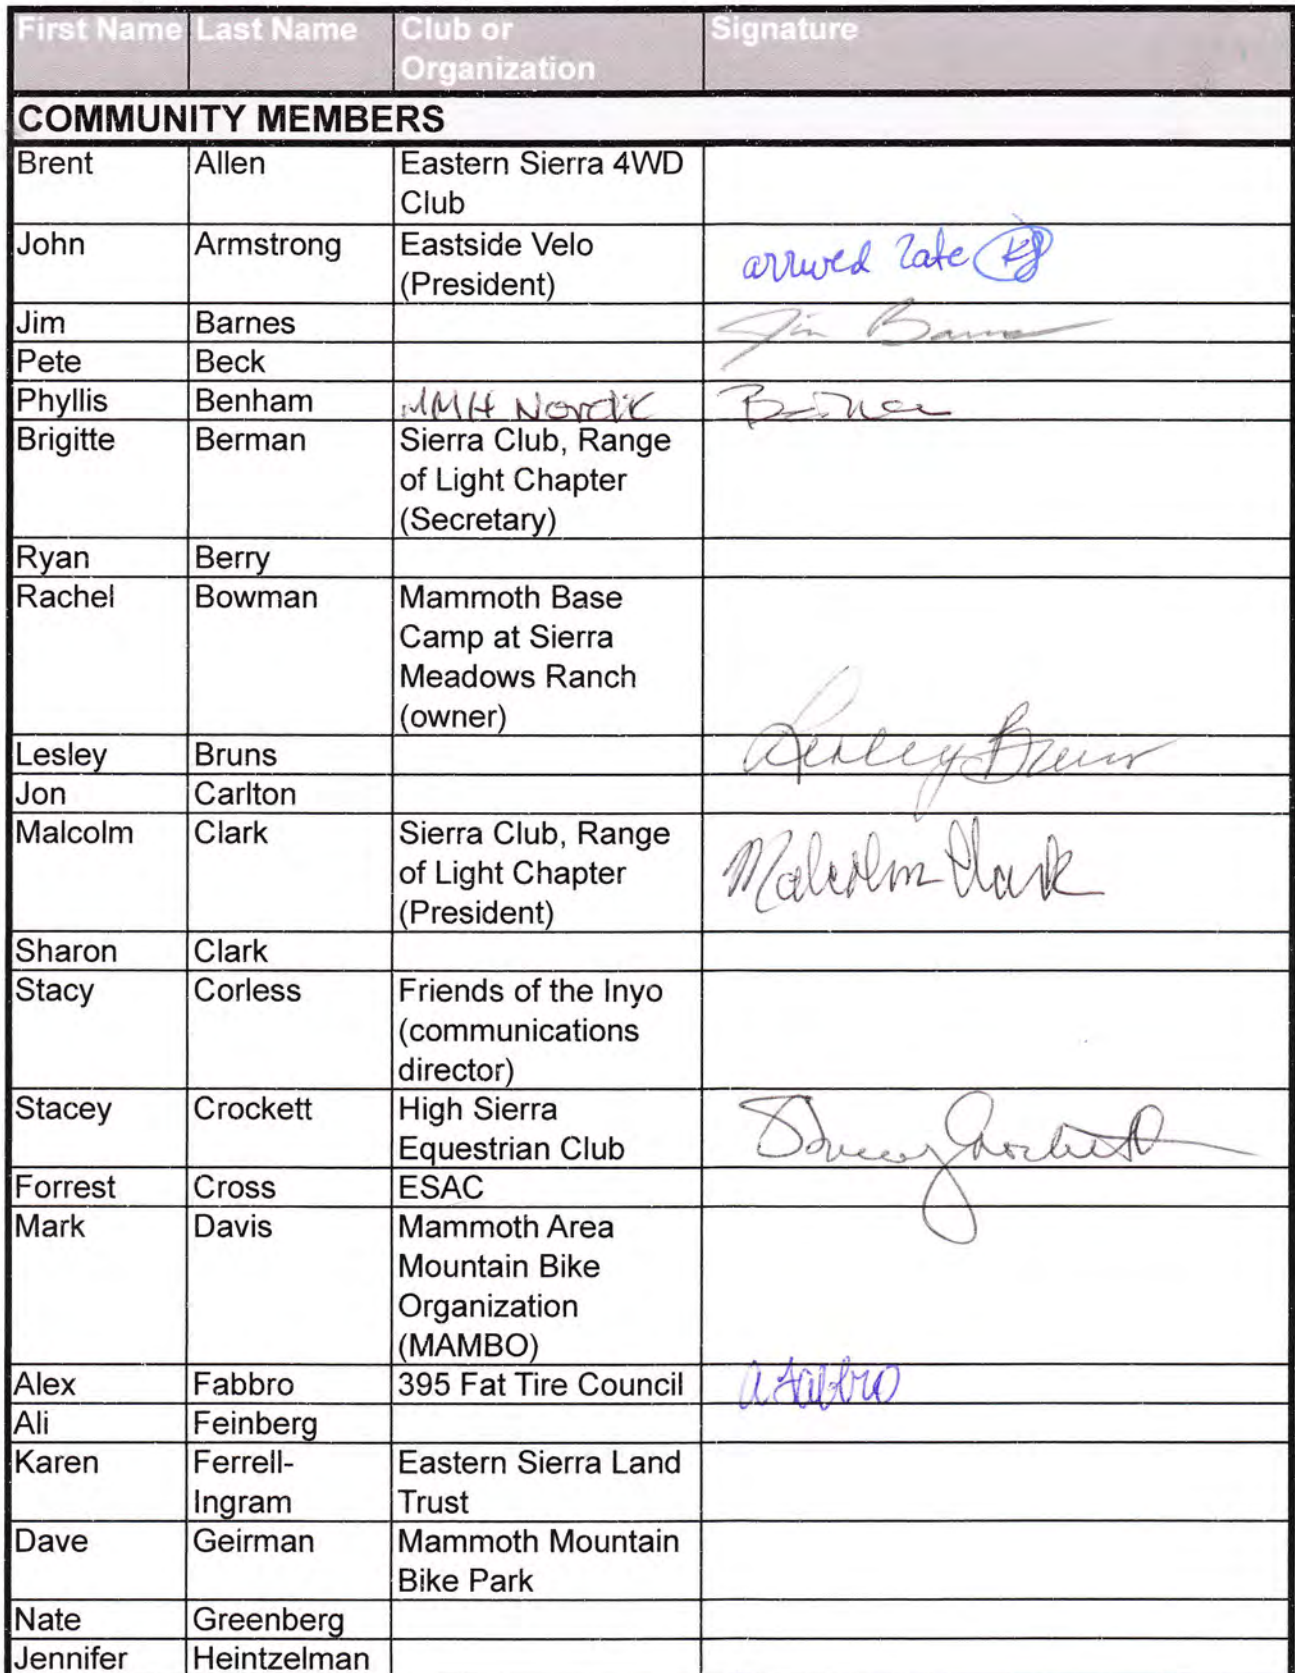 First Name Last Name Club or Signature
Organization
COMMUNITY MEMBERS
Brent Allen Eastern Sierra 4WD
Club
John Armstrong Eastside Velo arrived late
(President)
Jim Barnes Jim Barnes
Pete Beck
Phyllis Benham MMH Nordic
Brigitte Berman Sierra Club, Range
of Light Chapter
(Secretary)
Ryan Berry
Rachel Bowman Mammoth Base
Camp at Sierra
Meadows Ranch
(owner)
Lesley Bruns Lesley Bruns
Jon Carlton
Malcolm Clark Sierra Club, Range Malcolm Clark
of Light Chapter
(President)
Sharon Clark
Stacy Corless Friends of the Inyo
(communications
director)
Stacey Crockett High Sierra Stacey Crockett
Equestrian Club
Forrest Cross ESAC
Mark Davis Mammoth Area
Mountain Bike
Organization
(MAMBO)
Alex Fabbro 395 Fat Tire Council A Fabbro
Ali Feinberg
Karen Ferrell- Eastern Sierra Land
Ingram Trust
Dave Geirman Mammoth Mountain
Bike Park
Nate Greenberg
Jennifer Heintzelman